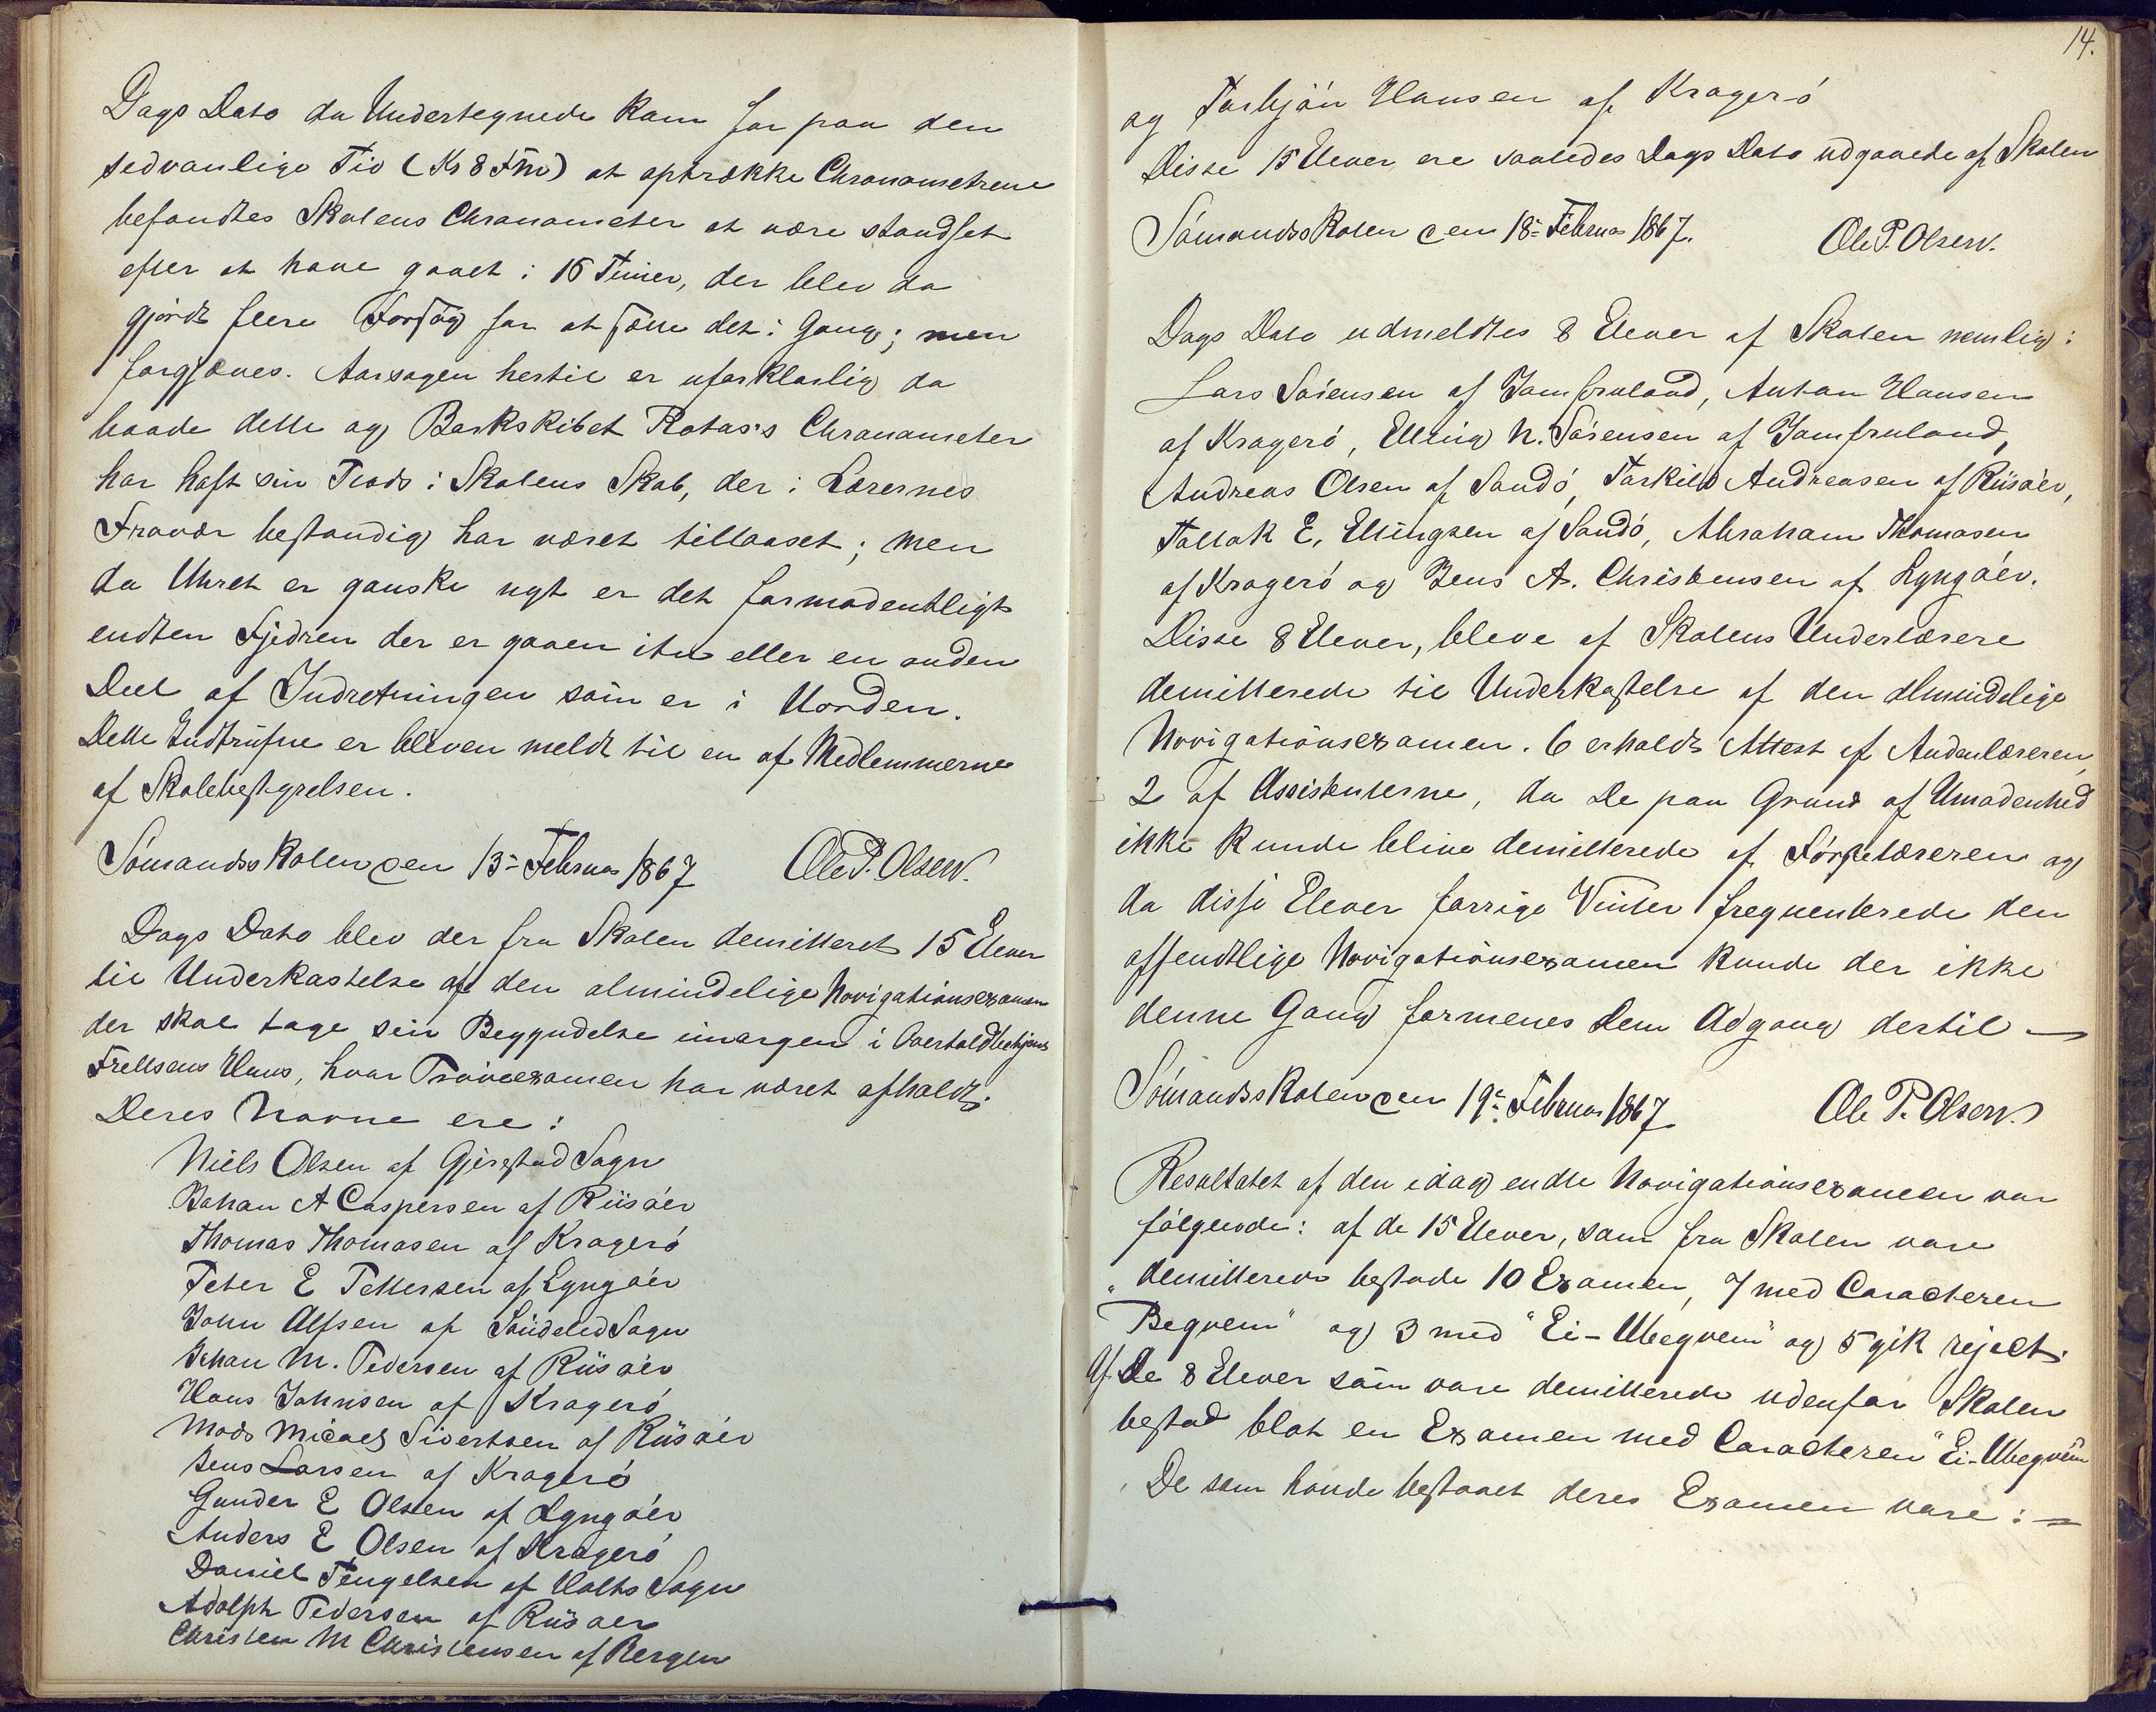 Dags Dato da Undertegnede kom for paa den
sedvanlige Tid (Kl 8 Fm) at optrække Chronometrene
befandtes Skolens Chronometer at være standset
efter at have gaaet i 16 Timer, der blev da
gjordt flere Forsøg for at sætte det i Gang; men
forgjæves. Aarsagen hertil er uforklarlig da
baade dette og Barkskibet Rotas's Chronometer
har haft sin Plads i Skolens Skab, der i Lærernes
Fravær bestandig har været tillaaset; men
da Uhret er ganske nyt er det formodentligt
endten Fjedren der er gaaen itu eller en anden
Deel af Indretningen som er i Uorden.
Dette Indtrufne er bleven meldt til en af Medlemmerne
af Skolebestyrelsen.
Sömandsskolen den 13- Februar 1867 Ole P. Olsen.
Dags Dato blev der fra Skolen demitteret 15 Elever
til Underkastelse af den almindelige Navigationsexamen
der skal tage sin Begyndelse imorgen i Overtoldbetjent
Frellsens Huus, hvor Prøveexamen har været afholdt.
Deres Navne ere:
Niels Olsen af Gjerestad Sogn
Johan A Caspersen af Riisöer
Thomas Thomasen af Kragerö
Peter E Pettersen af Lyngöer
John Alfsen af Söndeled Sogn
Johan M. Pedersen af Riisöer
Hans Johnsen af Kragerö
Mads Micael Sivertsen af Riisöer
Jens Larsen af Kragerö
Gunder E Olsen af Lyngöer
Anders E Olsen af Kragerö
Daniel Tengelsen af Holts Sogn
Adolph Pedersen af Riisöer
Christen M Christensen af Bergen
14.
og Torbjön Hansen af Kragerö
Disse 15 Elever ere saaledes Dags Dato udgaaede af Skolen
Sömandsskolen den 18- Februar 1867. Ole P. Olsen.
Dags Dato udmeldtes 8 Elever af Skolen nemlig:
Lars Sörensen af Jomfruland, Anton Hansen
af Kragerö, Elling N. Sörensen af Jomfruland,
Andreas Olsen af Sandö, Torkild Andreasen af Riisöer,
Tallak E. Ellingsen af Sandö, Abraham Thomasen
af Kragerö og Jens A. Christensen af Lyngöer.
Disse 8 Elever, bleve af Skolens Underlærere
demitterede til Underkastelse af den almindelige
Navigationsexamen. 6 erholdt Attest af Andenlæreren,
2 af Assistenterne, da De paa Grund af Umodenhed
ikke kunde blive demitterede af Førstelæreren og
da disse Elever forrige Vinter frequenterede den
offendtlige Navigationsexamen kunde der ikke
denne Gang formenes dem Adgang dertil —
Sömandsskolen den 19- Februar 1867 Ole P. Olsen.
Resultatet af den idag endte Navigationsexamen var
fölgende: af de 15 Elever, som fra Skolen vare
demitterede bestode 10 Examen, 7 med Caracteren
"Beqvem" og 3 med "Ei-Ubeqvem" og 5 gik reject.
Af De 8 Elever som vare demitterede udenfor Skolen
bestod blot en Examen med Caracteren "Ei-Ubeqvem"
De som havde bestaaet deres Examen vare: —